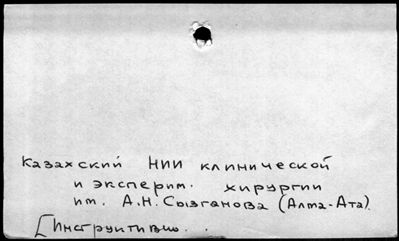 Казахский НИИ клинической
и эксперим. хирургии
им. А.Н. Сызганова (Алма-Ата).
[Инструктивно. .